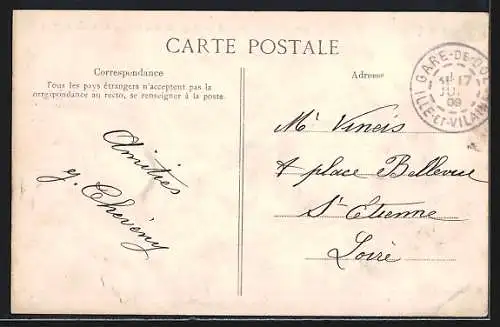 CARTE POSTALE
Correspondance
Tous les pays étrangers n'acceptent pas la
correspondance au recto, se renseigner à la poste.
Adresse
GARE-DE-DOL
17
09
ILLE-ET-VILAINE
Amitiés
Mr Vincis
4 place Bellevue
St Etienne
Loire